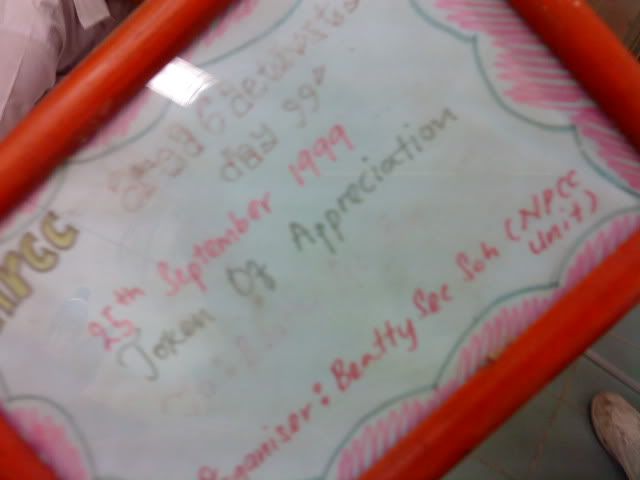 NPCC
day 99"
25th September 1999
Token Of Appreciation
Organiser: Beatty Sec Sch (NPCC
Unit)